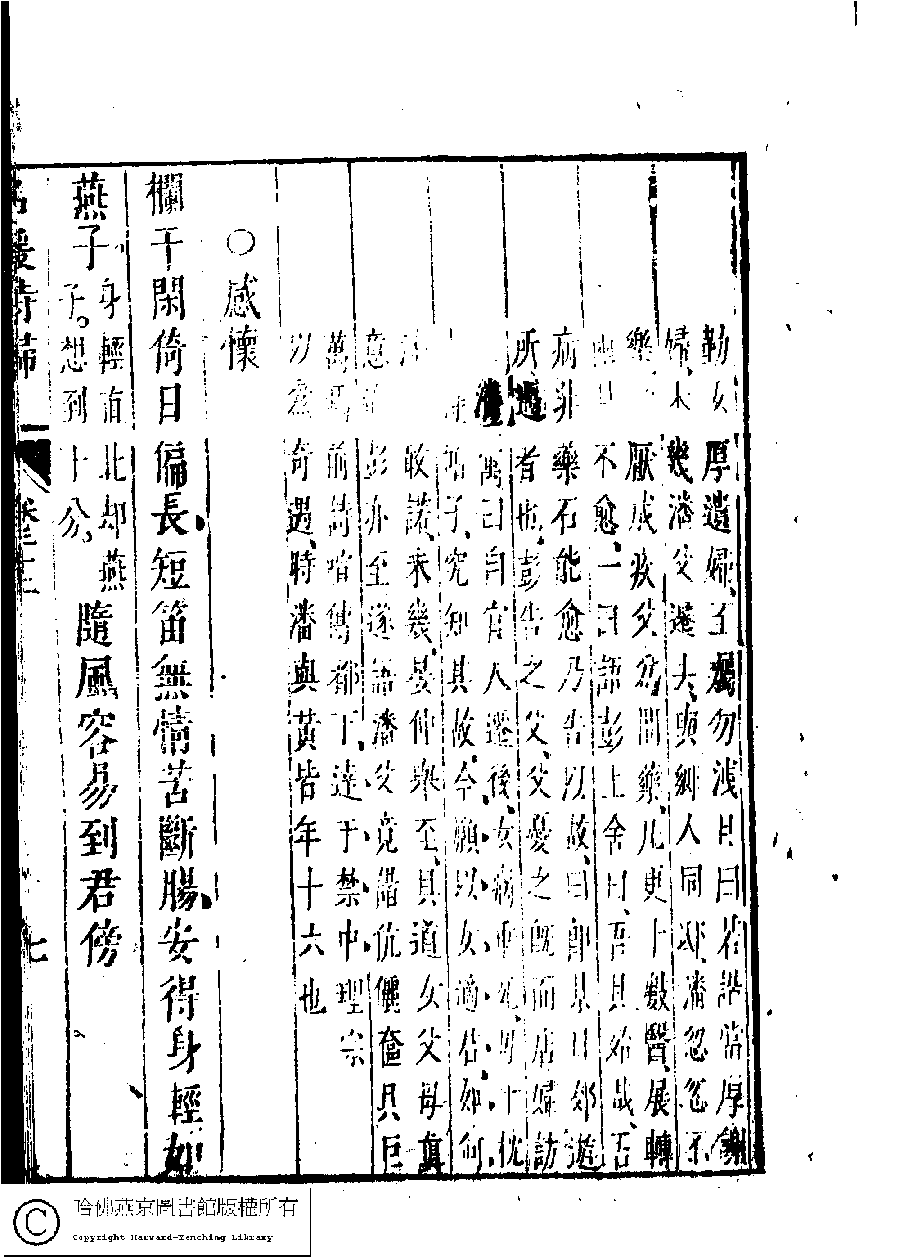 勒女厚遺婦至囑勿洩且曰若諧當厚謝
婦未幾潘父遷去與鄉人同邸潘忽忽不
樂厭成疾父為問藥凡更十數醫展轉
不愈一日語彭上舍曰吾其殆哉吾
病非藥石能愈乃告以故曰即某日郊遊
所遇者也彭告之父父憂之既而店婦訪
潘寓曰自官人遷後女病垂死母十枕
子究知其故今願以女適君如何
敢諾未幾晏仲舉至具道女父母真
意彭亦至遂語潘父竟諧伉儷奩具巨
萬馬前詩喧傳都下達于禁中理宗
以為奇遇時潘與黃皆年十六也
○感懷
欄干閑倚日偏長短笛無情苦斷腸安得身輕如
燕子身輕有北却燕子想到十分隨風容易到君傍
名媛詩歸
卷之二十
七
哈佛燕京圖書館版權所有
Copyright Harvard-Yenching Library